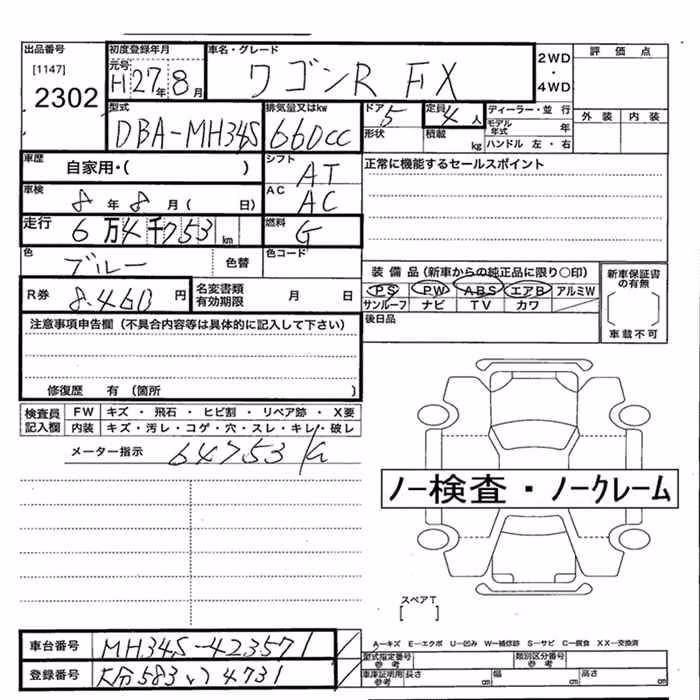 出品番号 初度登録年月 車名・グレード 2WD・4WD 評価点
[1147] 元号 H27年8月 ワゴンR FX
2302
型式 排気量又はkw ドア 5 定員 4人 ディーラー・並行 外装 内装
DBA-MH34S 660cc モデル年式 年
形状 積載 kg ハンドル 左・右
車歴 自家用・( ) シフト AT 正常に機能するセールスポイント
車検 8年8月( 日) AC AC
走行 6万4千753km 燃料 G
色 ブルー 色替 色コード
装備品(新車からの純正品に限り○印) 新車保証書の有無
R券 8.460円 名変書類有効期限 月 日 PS PW ABS エアB アルミW
サンルーフ ナビ TV カワ
注意事項申告欄(不具合内容等は具体的に記入して下さい) 後日品 車載不可
修復歴 有(箇所 )
検査員記入欄 FW キズ・飛石・ヒビ割・リペア跡・X要
内装 キズ・汚レ・コゲ・穴・スレ・キレ・破レ
メーター指示 64753
ノー検査・ノークレーム
スペアT
[ ]
車台番号 MH34S-423571 A−キズ E−エクボ U−凹み W−補修跡 S−サビ C−腐食 XX−交換済
型式指定番号 参考 類別区分番号 参考
登録番号 583 4731 車庫証明用 参考 長さ cm 幅 cm 高さ cm